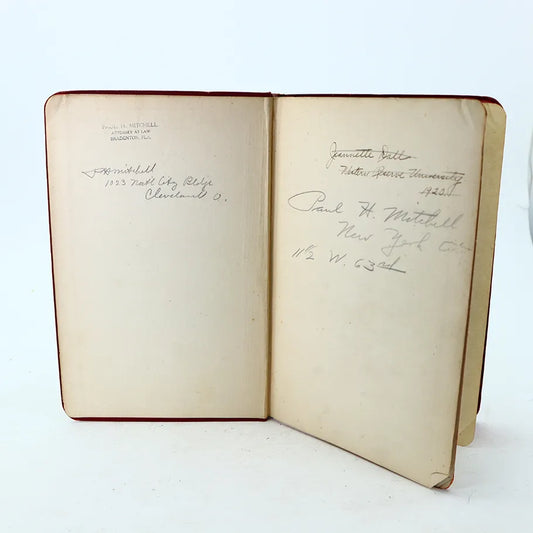 PAUL H. MITCHELL
ATTORNEY AT LAW
BRADENTON, FLA.
P H Mitchell
1023 Natl City Bldg
Cleveland O.
Jeannette Dall
Western Reserve University
1920
Paul H. Mitchell
New York City
112 W. 63rd